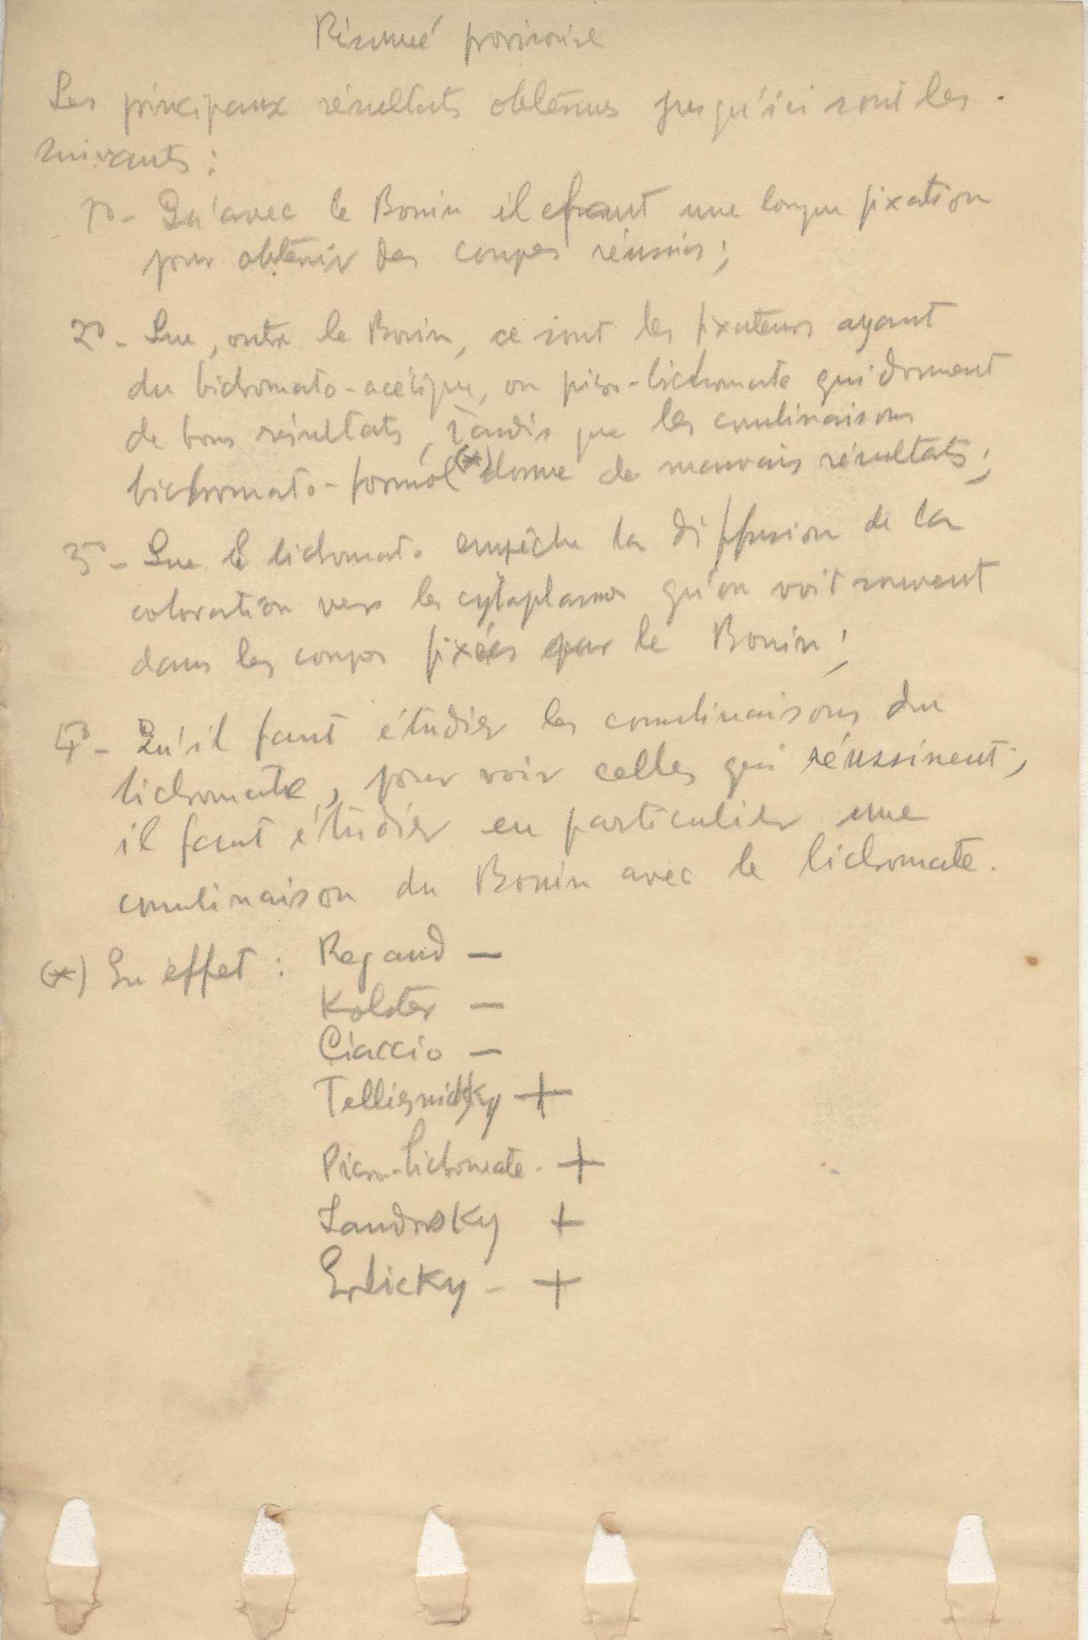 Résumé provisoire
Les principaux résultats obtenus jusqu'ici sont les
suivants :
1º- Qu'avec le Bouin il faut une longue fixation
pour obtenir des coupes réussies ;
2º- Que, outre le Bouin, ce sont les fixateurs ayant
du bichromato-acétique, ou picro-bichromate qui donnent
de bons résultats, tandis que les combinaisons
bichromato-formol (*) donne de mauvais résultats ;
3º- Que le bichromate empêche la diffusion de la
coloration vers les cytoplasmes qu'on voit souvent
dans les coupes fixées par le Bouin ;
4º- Qu'il faut étudier les combinaisons du
bichromate, pour voir celles qui réussissent ;
il faut étudier en particulier une
combinaison du Bouin avec le bichromate.
(*) En effet : Regaud —
Kolster —
Ciaccio —
Tellisnicky +
Picro-bichromate - +
Landowsky +
Erlicky - +